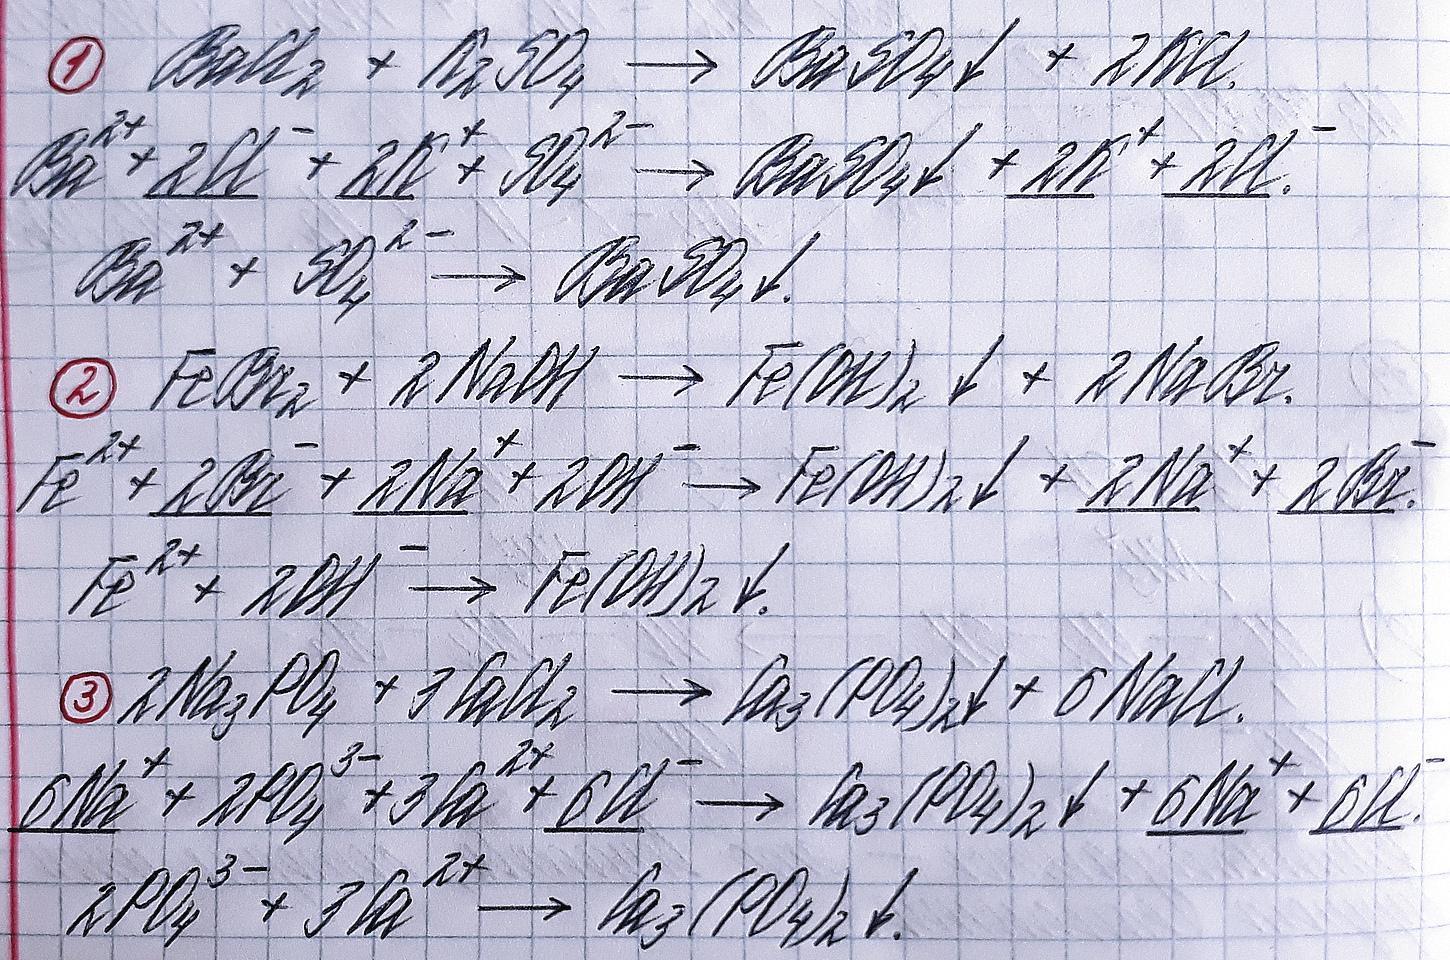 ① BaCl₂ + K₂SO₄ → BaSO₄↓ + 2KCl.
Ba²⁺ + 2Cl⁻ + 2K⁺ + SO₄²⁻ → BaSO₄↓ + 2K⁺ + 2Cl⁻.
Ba²⁺ + SO₄²⁻ → BaSO₄↓.
② FeBr₂ + 2NaOH → Fe(OH)₂↓ + 2NaBr.
Fe²⁺ + 2Br⁻ + 2Na⁺ + 2OH⁻ → Fe(OH)₂↓ + 2Na⁺ + 2Br⁻.
Fe²⁺ + 2OH⁻ → Fe(OH)₂↓.
③ 2Na₃PO₄ + 3CaCl₂ → Ca₃(PO₄)₂↓ + 6NaCl.
6Na⁺ + 2PO₄³⁻ + 3Ca²⁺ + 6Cl⁻ → Ca₃(PO₄)₂↓ + 6Na⁺ + 6Cl⁻.
2PO₄³⁻ + 3Ca²⁺ → Ca₃(PO₄)₂↓.